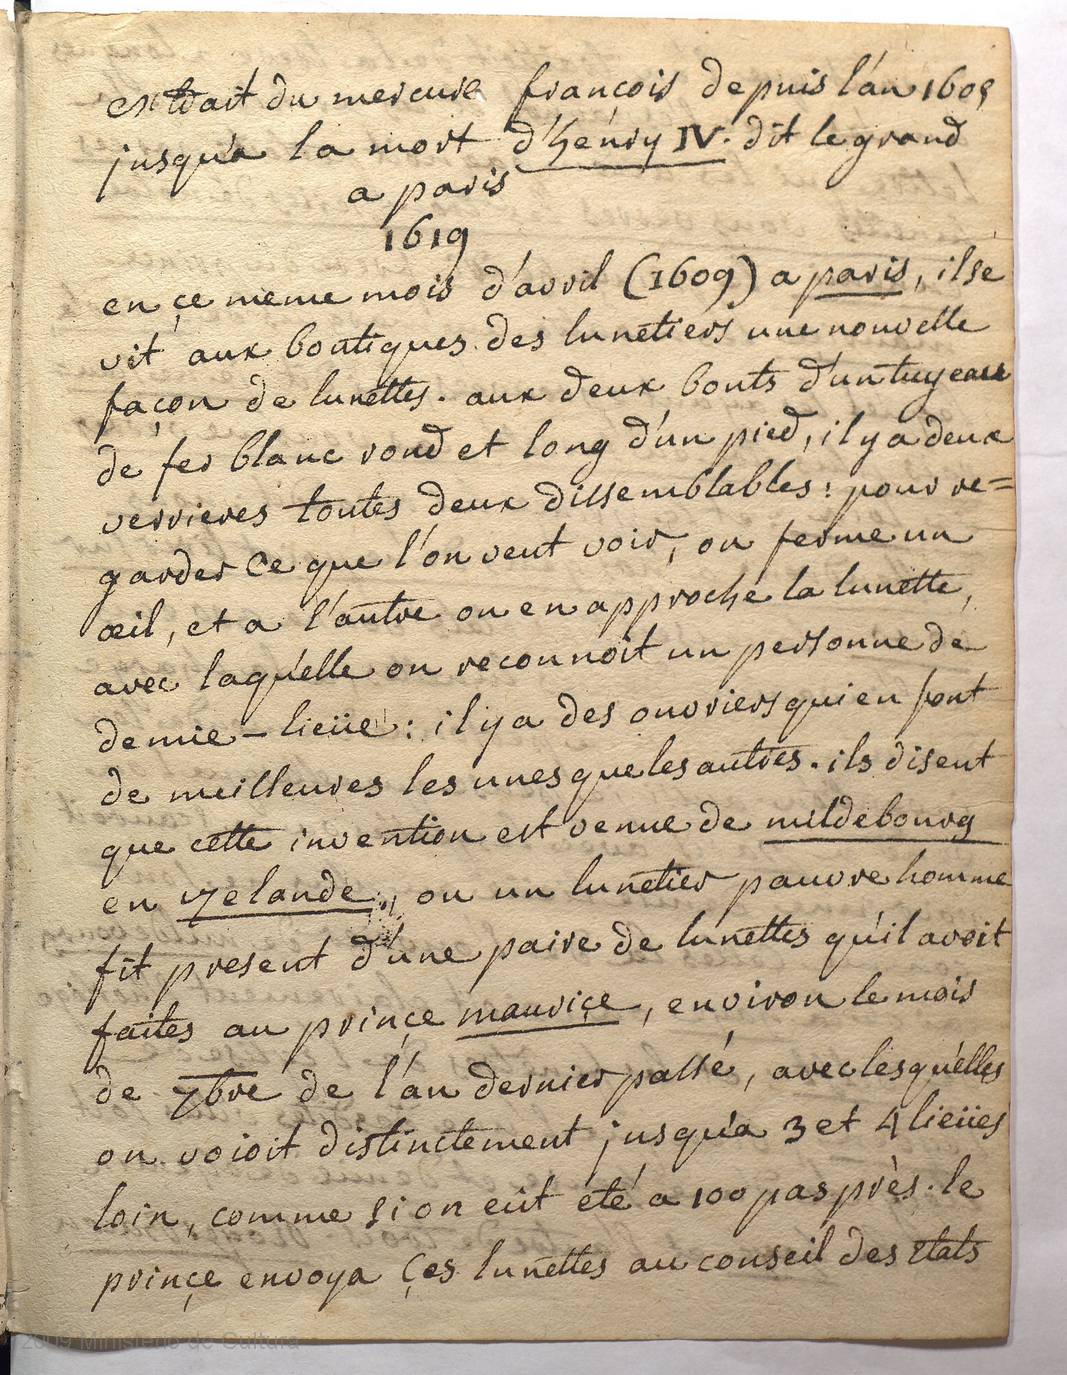 extrait du mercure françois depuis l'an 1605
jusqu'a la mort d'henry IV. dit le grand
a paris
1619
en çe meme mois d'avril (1609) a paris, il se
vit aux boutiques des lunetiers une nouvelle
façon de lunettes. aux deux bouts d'un tuyeau
de fer blanc rond et long d'un pied, il y a deux
verrieres toutes deux dissemblables: pour re=
garder ce que l'on veut voir, on ferme un
œil, et a l'autre on en approche la lunette,
avec laqu'elle on reconnoit un personne de
demie-lieüe: il y a des ouvriers qui en font
de meilleures les unes que les autres. ils disent
que cette invention est venue de mildebourg
en zelande, ou un lunetier pauvre homme
fit present d'une paire de lunettes qu'il avoit
faites au prinçe mauriçe, environ le mois
de 7bre de l'an dernier passé, avec lesqu'elles
on voioit distinctement jusqu'a 3 et 4 lieües
loin, comme si on eut eté a 100 pas près. le
prinçe envoya çes lunettes au conseil des Etats
2009 Ministerio de Cultura